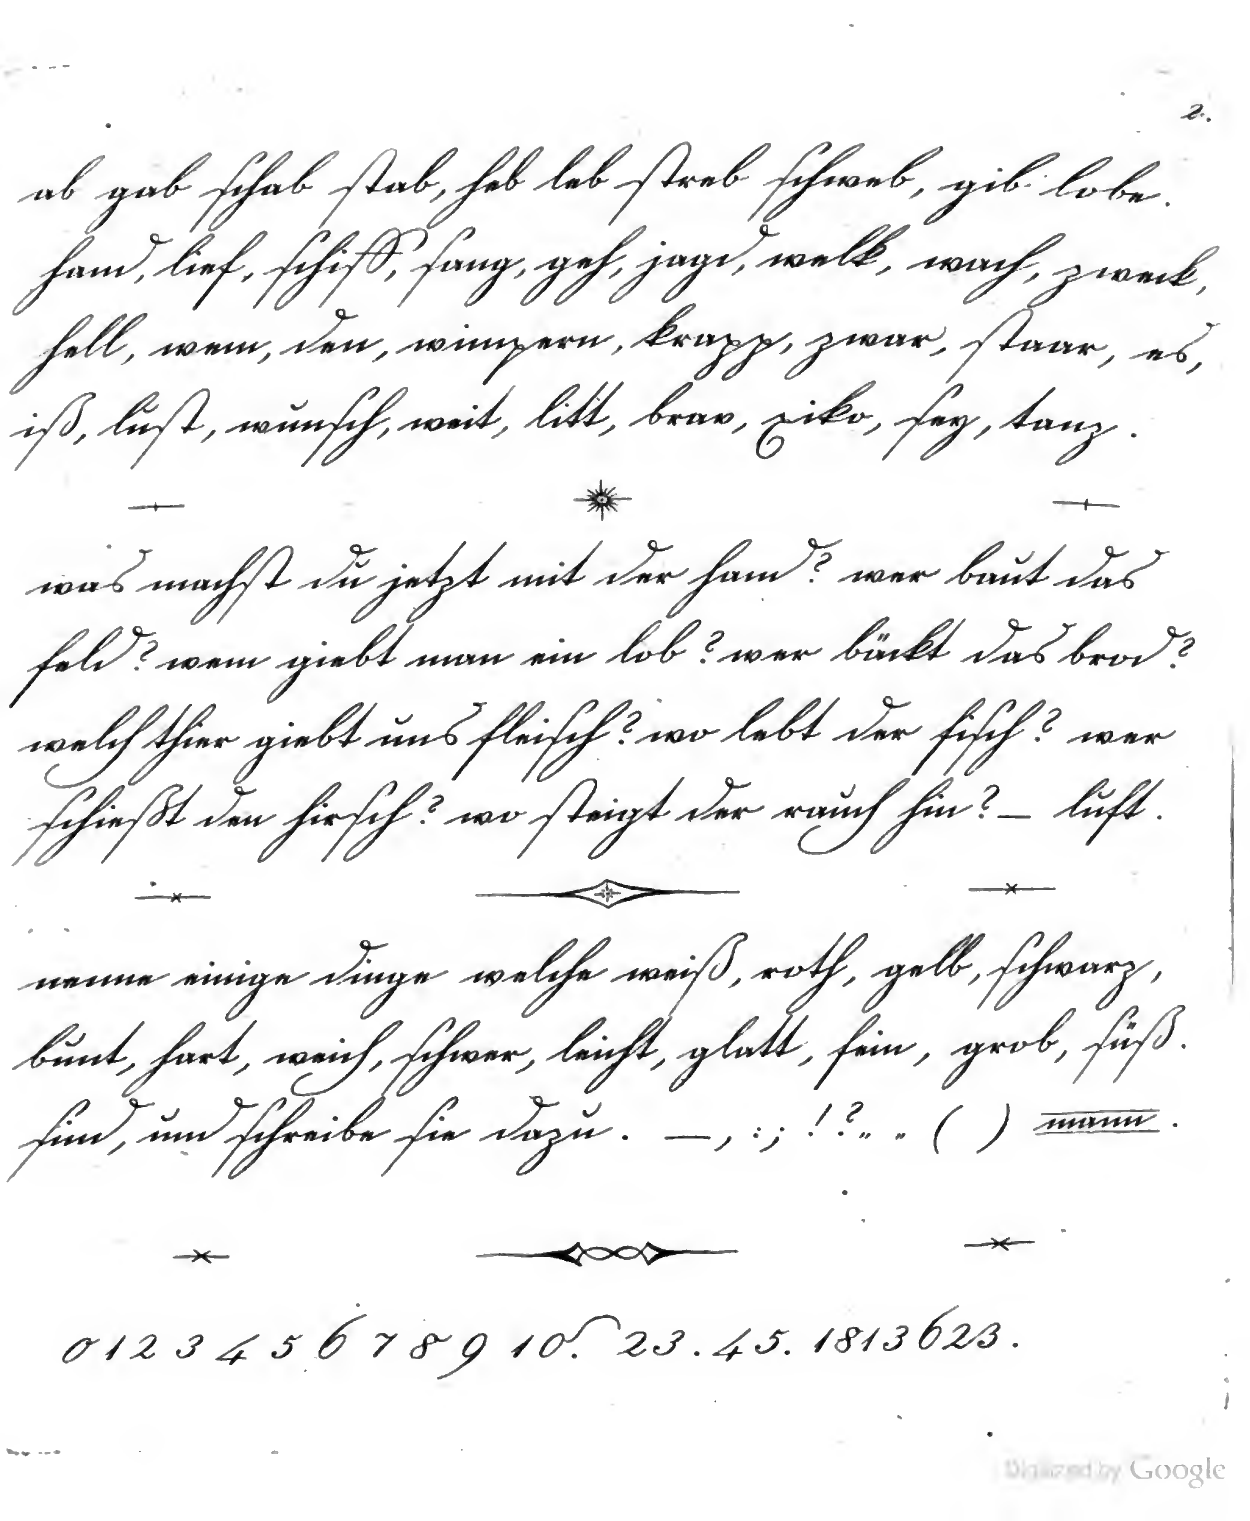 2.
ab gab schab stab, heb leb streb schweb, gib lobe.
hand, lief, schiff, sang, geh, jagd, welk, wach, zweck,
hell, wem, den, wimpern, krapp, zwar, staar, es,
iß, lust, wunsch, weit, litt, brav, xiko, sey, tanz.
was machst du jetzt mit der hand? wer baut das
feld? wem giebt man ein lob? wer bäckt das brod?
welch thier giebt uns fleisch? wo lebt der fisch? wer
schießt den hirsch? wo steigt der rauch hin? — luft.
nenne einige dinge welche weiß, roth, gelb, schwarz,
bunt, hart, weich, schwer, leicht, glatt, fein, grob, süß.
sind, und schreibe sie dazu. —, :; !?„ „ ( ) mann.
0 1 2 3 4 5 6 7 8 9 10. 23. 45. 1813623.
Digitized by Google